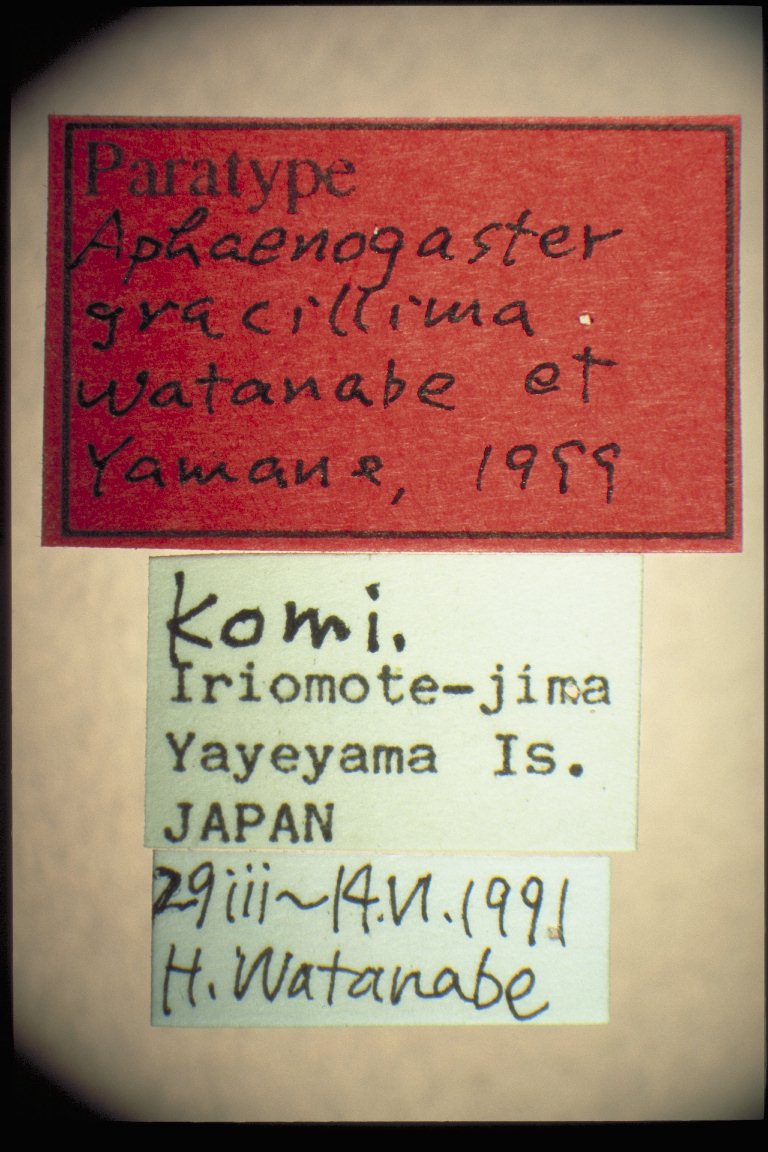 Paratype
Aphaenogaster
gracillima
Watanabe et
Yamane, 1999
Komi.
Iriomote-jima
Yayeyama Is.
JAPAN
29iii~14.VI.1991
H. Watanabe